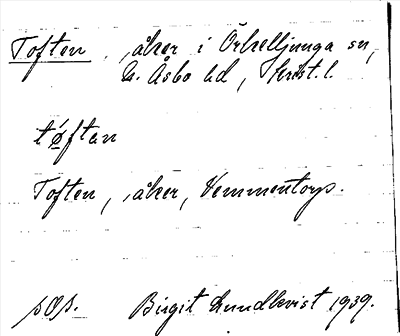 Toften, åker i Örkelljunga sn,
N. Åsbo hd, Krist. l.
tǿftan
Toften, åker, Vemmentorp.
sOp. Birgit Lundkvist 1939.